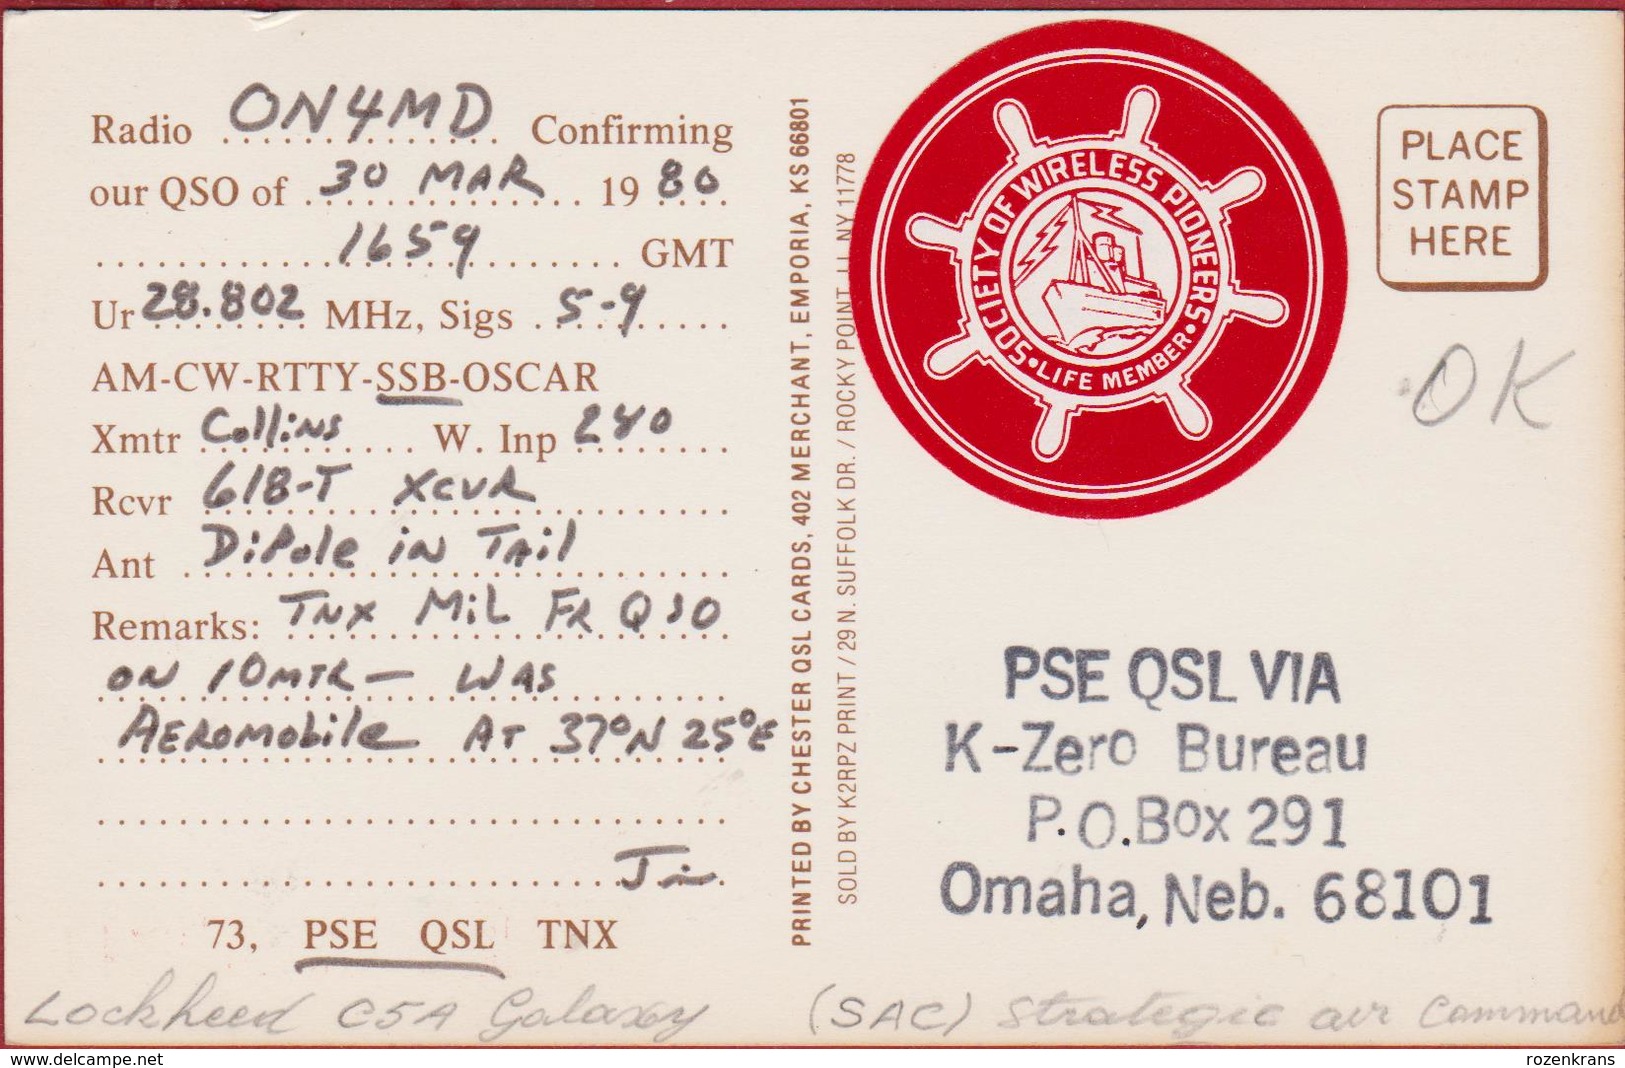 Radio ON4MD Confirming
our QSO of 30 MAR 19 80
1659 GMT
Ur 28.802 MHz, Sigs 5-9
AM-CW-RTTY-SSB-OSCAR
Xmtr Collins W. Inp 240
Rcvr 618-T XCVR
Ant Dipole in Tail
Remarks: TNX Mil FR QSO
ON 10MTR — WAS
AEROMObile AT 37°N 25°E
Jim
73, PSE QSL TNX
PRINTED BY CHESTER QSL CARDS, 402 MERCHANT, EMPORIA, KS 66801
SOLD BY K2RPZ PRINT / 29 N. SUFFOLK DR. / ROCKY POINT, LI, NY 11778
SOCIETY OF WIRELESS PIONEERS
• LIFE MEMBER •
PLACE
STAMP
HERE
OK
PSE QSL VIA
K-Zero Bureau
P.O.Box 291
Omaha, Neb. 68101
Lockheed C5A Galaxy (SAC) Strategic air Command
delcampe.net
rozenkrans